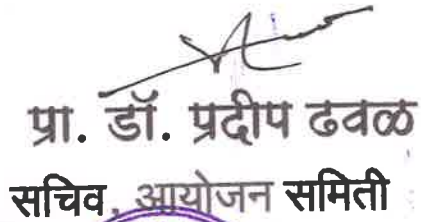 प्रा. डॉ. प्रदीप ढवळ
सचिव, आयोजन समिती